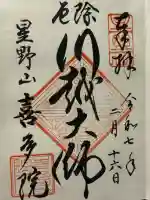 奉拝
令和七年
二月十六日
厄除
川越大師
星野山
喜多院